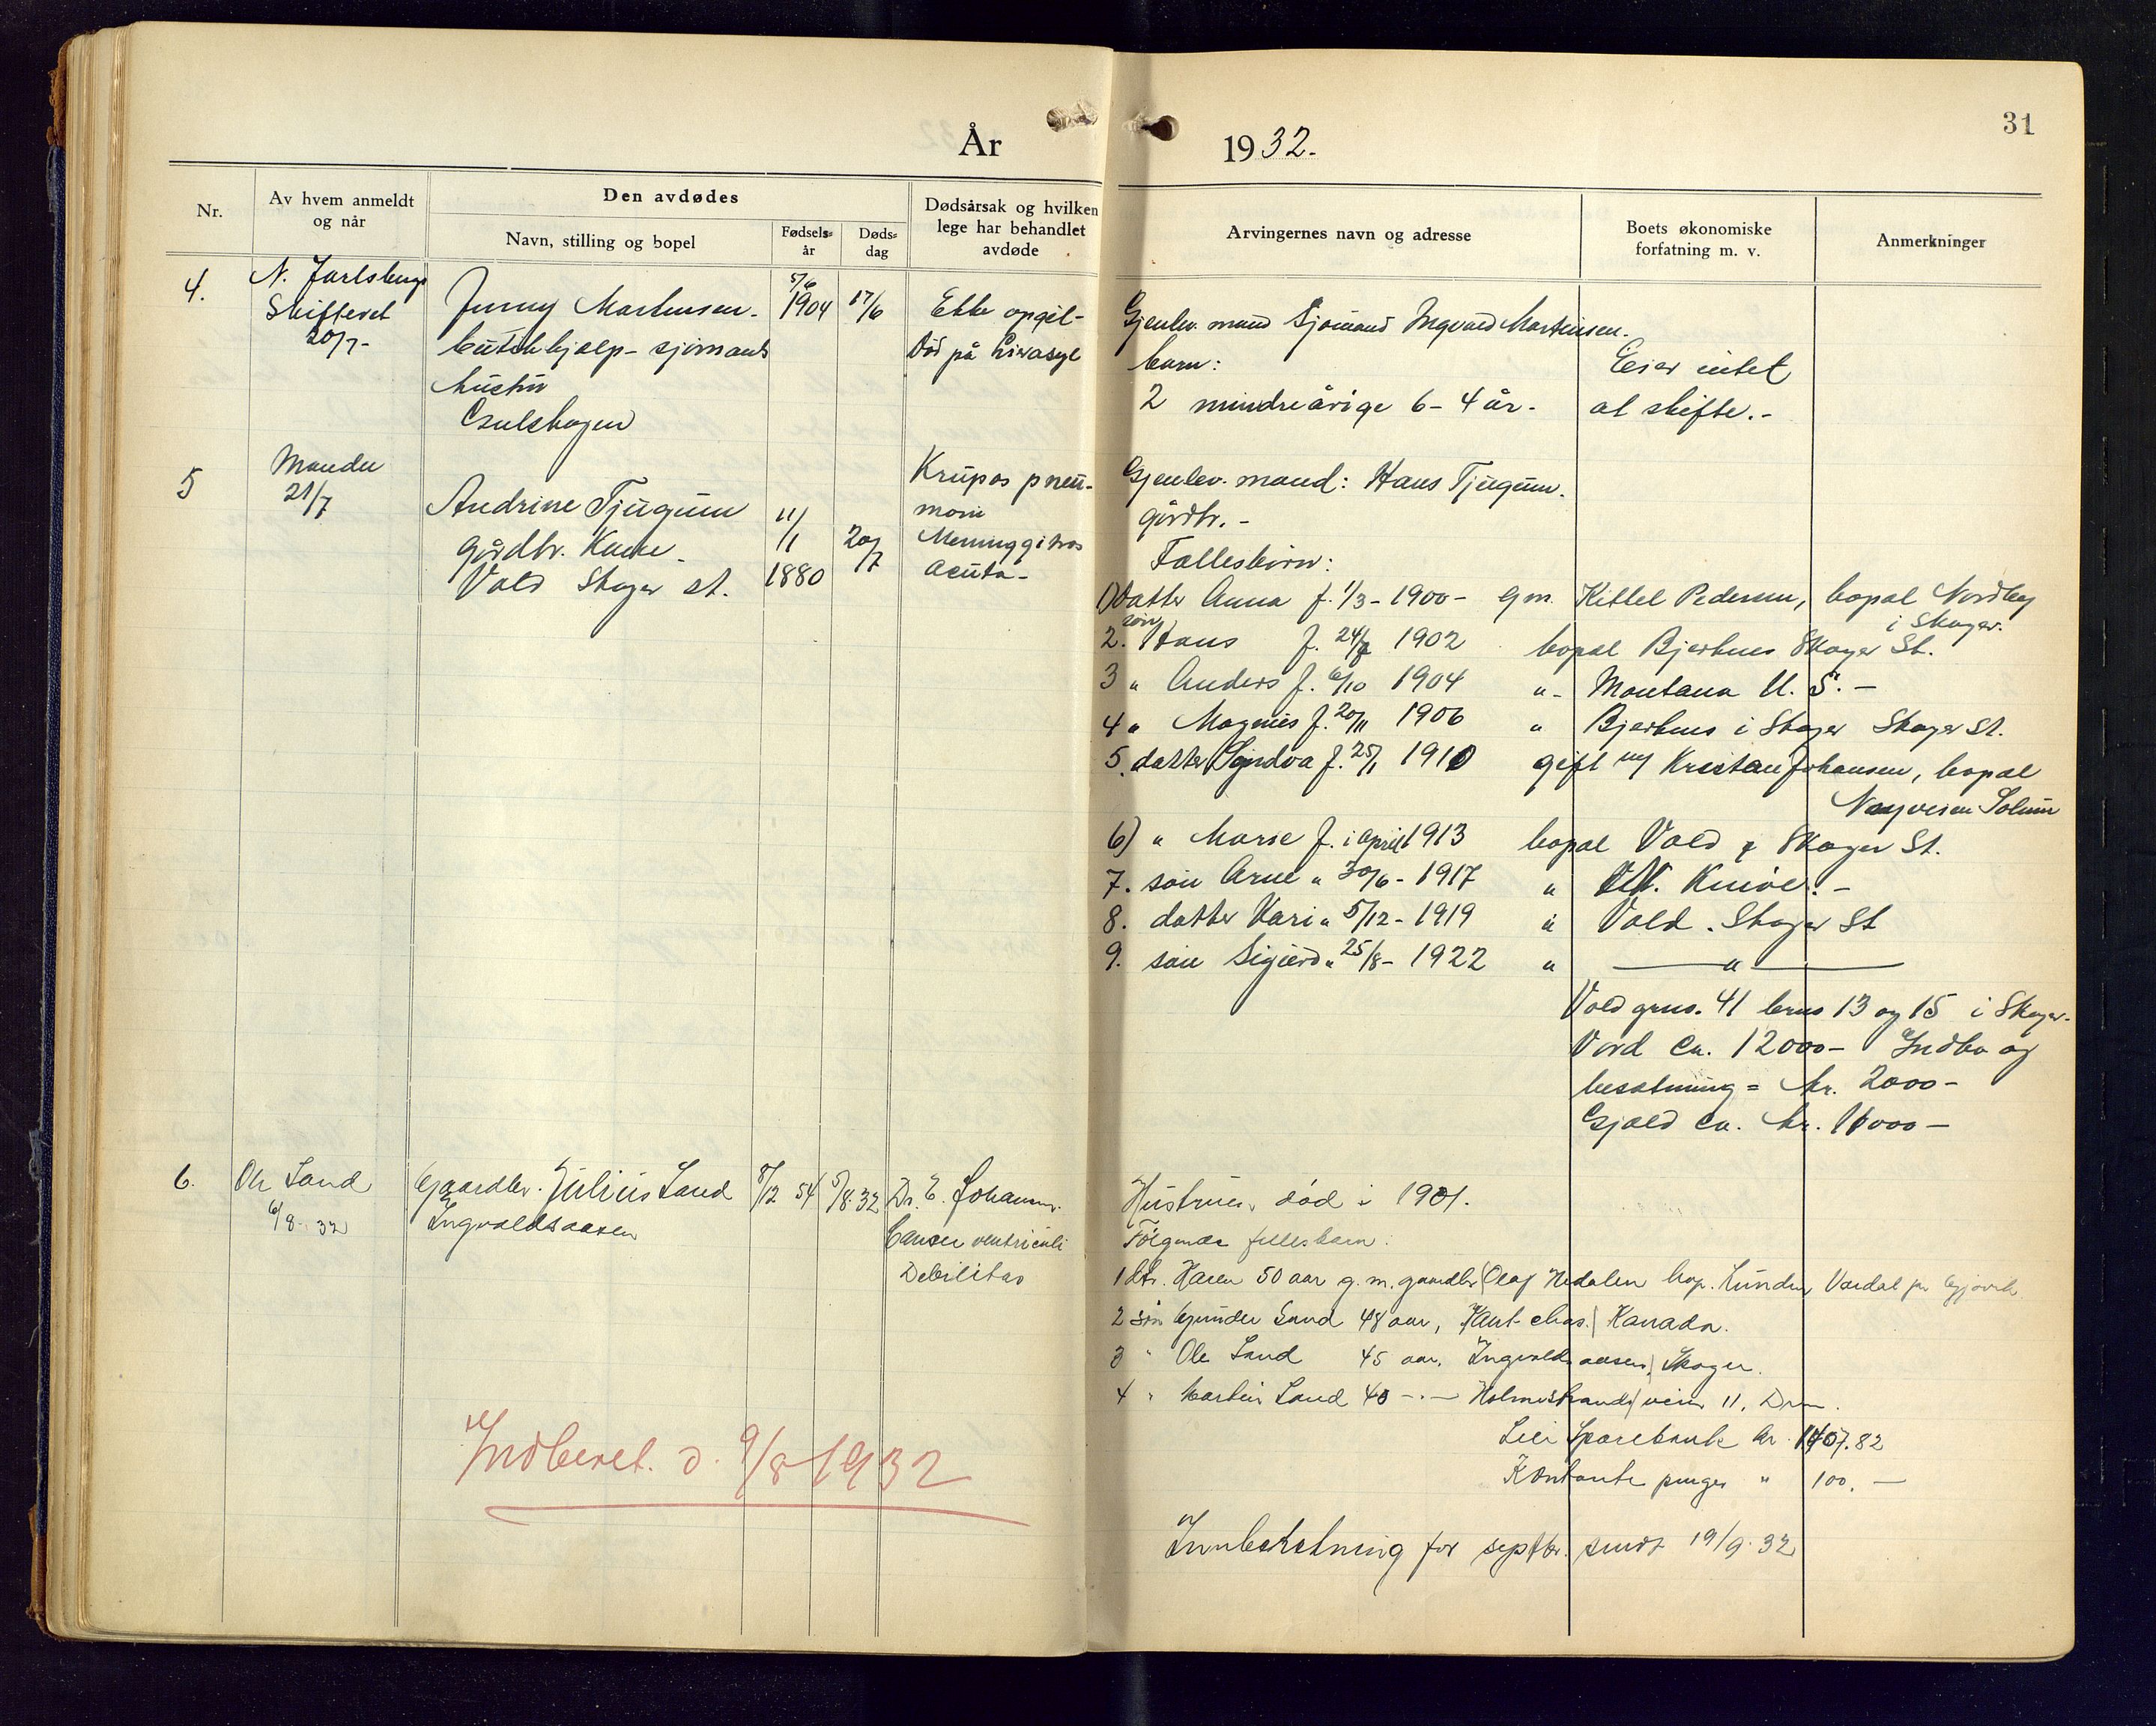 31
År 1932.
Nr.
Av hvem anmeldt
og når
Den avdødes
Navn, stilling og bopel
Fødsels-
år
Døds-
dag
Dødsårsak og hvilken
lege har behandlet
avdøde
Arvingernes navn og adresse
Boets økonomiske
forfatning m. v.
Anmerkninger
4.
N. Jarlsberg
Skifteret
20/7-
Jenny Martinsen.
- sjømands
hustru
5/6
1904
17/6
Ikke opgit-
Død på Lierasyl
Gjenlev. mand Sjømand Ingvald Martinsen.
barn:
2 mindreårige 6-4 år.
Eier intet
at skifte.-
5
Manden
21/7
Andrine Tjugum
gårdbr. Kone.
Vold Skoger st.
11/1
1880
20/7
Krupøs pneu-
moni
Acuta-
Gjenlev. mand: Hans Tjugum.
gårdbr. -
Fællesbørn:
1) datter Anna f. 1/3-1900- gm. Kittel Pedersen, bopæl Nordby
i Skoger.
2. søn Hans f. 24/7 1902 bopæl Bjerknes Skoger St.
3 " Anders f. 6/10 1904 "- Montana U. S. -
4 " Magnus f. 20/11 1906 " Bjerknes i Skoger Skoger St.
5. datter f. 25/1 1910 gift m/ Kristian Johansen, bopæl
Solum
6) " Marie f. i april 1913 bopæl Vold Skoger St.
7. søn Arne " 30/6-1917 " Knive. -
8. datter Kari " 5/12-1919 " Vold. Skoger St
9. søn Sigurd " 25/8-1922 " — " —
Vold grns. 41 brns 13 og 15 i Skoger.
Verd ca. 12000- Indbo og
besætning = kr. 2000-
Gjæld ca. kr. 11000-
6.
Ole Sand
6/8-32
Gaardbr. Julius Sand
Ingvaldsaasen
8/12 54
5/8-32
Dr. E. Johansen.
Cancer ventriculi
Debilitas
Hustruen død i 1901.
Følgende fellesbarn:
1 dtr. Karen 50 aar g. m. gaardbr. Olaf Hedalen bop. Vardal pr Gjøvik
2 søn Gunder Sand 48 aar, Kanada.
3 " Ole Sand 45 aar, Ingvaldsaasen, Skoger.
4 " Martin Sand 40 -"- Holmestrandsveien 11, Drm.
Lier Sparebank kr. 1407.82
Kontante penger " 100.-
Indberet. d. 9/8 1932
Innberetning for septbr. sendt 19/9-32